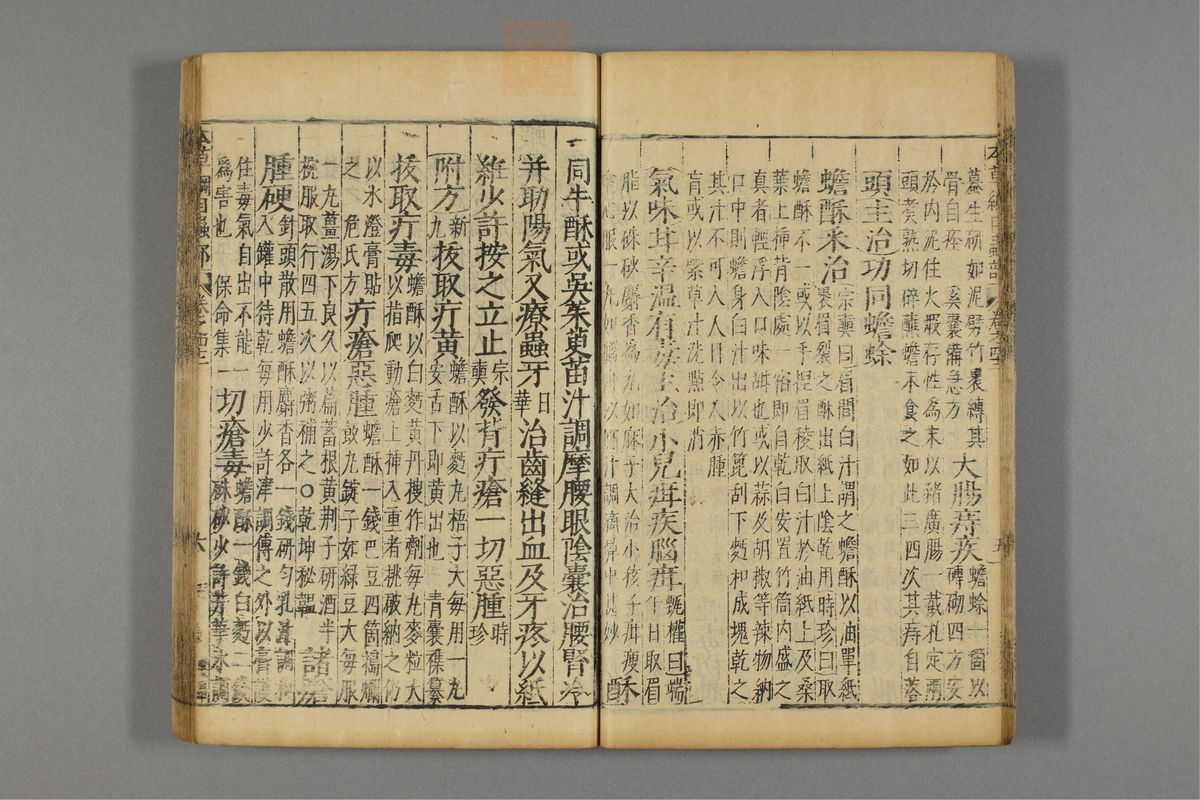 蟇生研如泥劈竹裹縛其
骨自痊 奚囊備急方
大腸痔疾
蟾蜍一箇以
磚砌四方安
於內泥住火煅存性為末以豬廣腸一截扎定兩
頭煮熟切碎蘸蟾末食之如此三四次其痔自落
頭主治功同蟾蜍
蟾酥采治
宗奭曰眉間白汁謂之蟾酥以油單紙
裹眉裂之酥出紙上陰乾用時珍曰取
蟾酥不一或以手捏眉稜取白汁於油紙上及桑
葉上揷背陰處一宿即自乾白安置竹筒內盛之
真者輕浮入口味甜也或以蒜及胡椒等辣物納
口中則蟾身白汁出以竹篦刮下麪和成塊乾之
其汁不可入人目令人赤腫
盲或以紫草汁洗點即消
氣味甘辛溫有毒主治小兒疳疾腦疳
甄權曰端
午日取眉
脂以硃砂麝香為丸如麻子大治小孩子疳瘦
心服一丸如
酒調滴鼻中甚妙
酥
同牛酥或吳茱萸苗汁調摩腰眼陰囊治腰腎冷
并助陽氣又療蟲牙
日
華
治齒縫出血及牙疼以紙
紝少許按之立止
宗
奭
發背疔瘡一切惡腫
時
珍
附方
新
九
拔取疔黃
蟾酥以麪丸梧子大每用一丸
安舌下即黃出也 青囊襍纂
拔取疔毒
蟾酥以白麪黃丹搜作劑每丸麥粒大
以指爬動瘡上揷入重者挑破納之仍
以水澄膏貼
之 危氏方
疔瘡惡腫
蟾酥一錢巴豆四箇搗爛
飲丸錠子如綠豆大每服
一丸薑湯下良久以萹蓄根黃荆子研酒半
椀服取行四五次以粥補之○乾坤秘韞
諸瘡
腫硬
針頭散用蟾酥麝香各一錢研勻乳汁調和
入罐中待乾每用少許津調傅之外以膏護
住毒氣自出不能
為害也 保命集
一切瘡毒
蟾酥一錢白麪二錢
硃砂少許井華水調